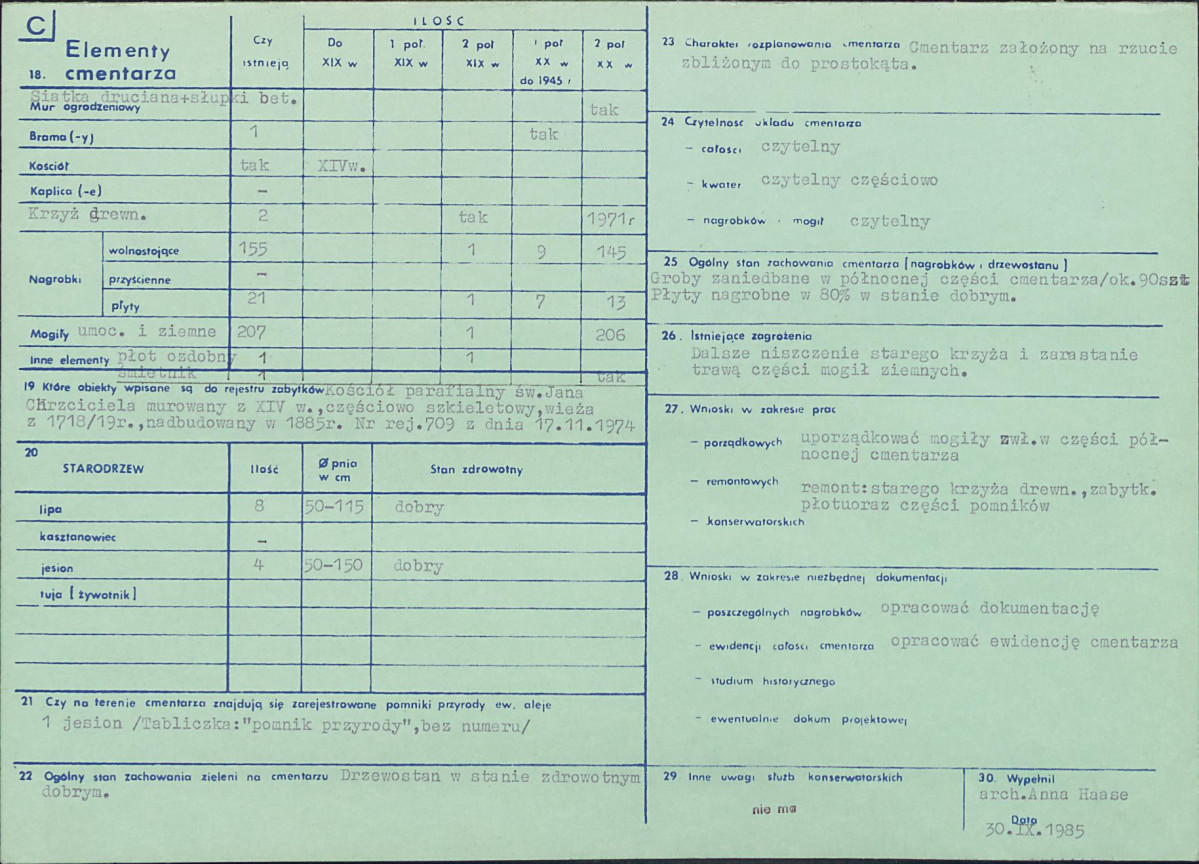 C
Elementy
18. cmentarza
Czy
istnieją
ILOŚĆ
Do
XIX w
1 poł.
XIX w
2 poł
XIX w
1 poł
XX w
do 1945 r
2 poł
XX w
Siatka druciana+słupki bet.
Mur ogrodzeniowy tak
Brama (-y) 1 tak
Kościół tak XIVw.
Kaplica (-e) –
Krzyż drewn. 2 tak 1971r
Nagrobki
wolnostojące 155 1 9 145
przyścienne –
płyty 21 1 7 13
Mogiły umoc. i ziemne 207 1 206
Inne elementy płot ozdobny 1 1
śmietnik 1 tak
19 Które obiekty wpisane są do rejestru zabytków Kościół parafialny św.Jana
Chrzciciela murowany z XIV w.,częściowo szkieletowy,wieża
z 1718/19r.,nadbudowany w 1885r. Nr rej.709 z dnia 17.11.1974
20
STARODRZEW Ilość Ø pnia
w cm Stan zdrowotny
lipa 8 50-115 dobry
kasztanowiec –
jesion 4 50-150 dobry
tuja [ żywotnik ]
21 Czy na terenie cmentarza znajdują się zarejestrowane pomniki przyrody ew. aleje
1 jesion /Tabliczka:"pomnik przyrody",bez numeru/
22 Ogólny stan zachowania zieleni na cmentarzu Drzewostan w stanie zdrowotnym
dobrym.
23 Charakter rozplanowania cmentarza Cmentarz założony na rzucie
zbliżonym do prostokąta.
24 Czytelność układu cmentarza
– całości czytelny
– kwater czytelny częściowo
– nagrobków i mogił czytelny
25 Ogólny stan zachowania cmentarza [nagrobków i drzewostanu ]
Groby zaniedbane w północnej części cmentarza/ok.90szt
Płyty nagrobne w 80% w stanie dobrym.
26. Istniejące zagrożenia
Dalsze niszczenie starego krzyża i zarastanie
trawą części mogił ziemnych.
27. Wnioski w zakresie prac
– porządkowych uporządkować mogiły zwł.w części pół-
nocnej cmentarza
– remontowych remont:starego krzyża drewn.,zabytk.
płotuoraz części pomników
– konserwatorskich
28. Wnioski w zakresie niezbędnej dokumentacji
– poszczególnych nagrobków opracować dokumentację
– ewidencji całości cmentarza opracować ewidencję cmentarza
– studium historycznego
– ewentualnie dokum projektowej
29 Inne uwagi służb konserwatorskich
nie ma
30. Wypełnił
arch.Anna Haase
Data
30.IX.1985